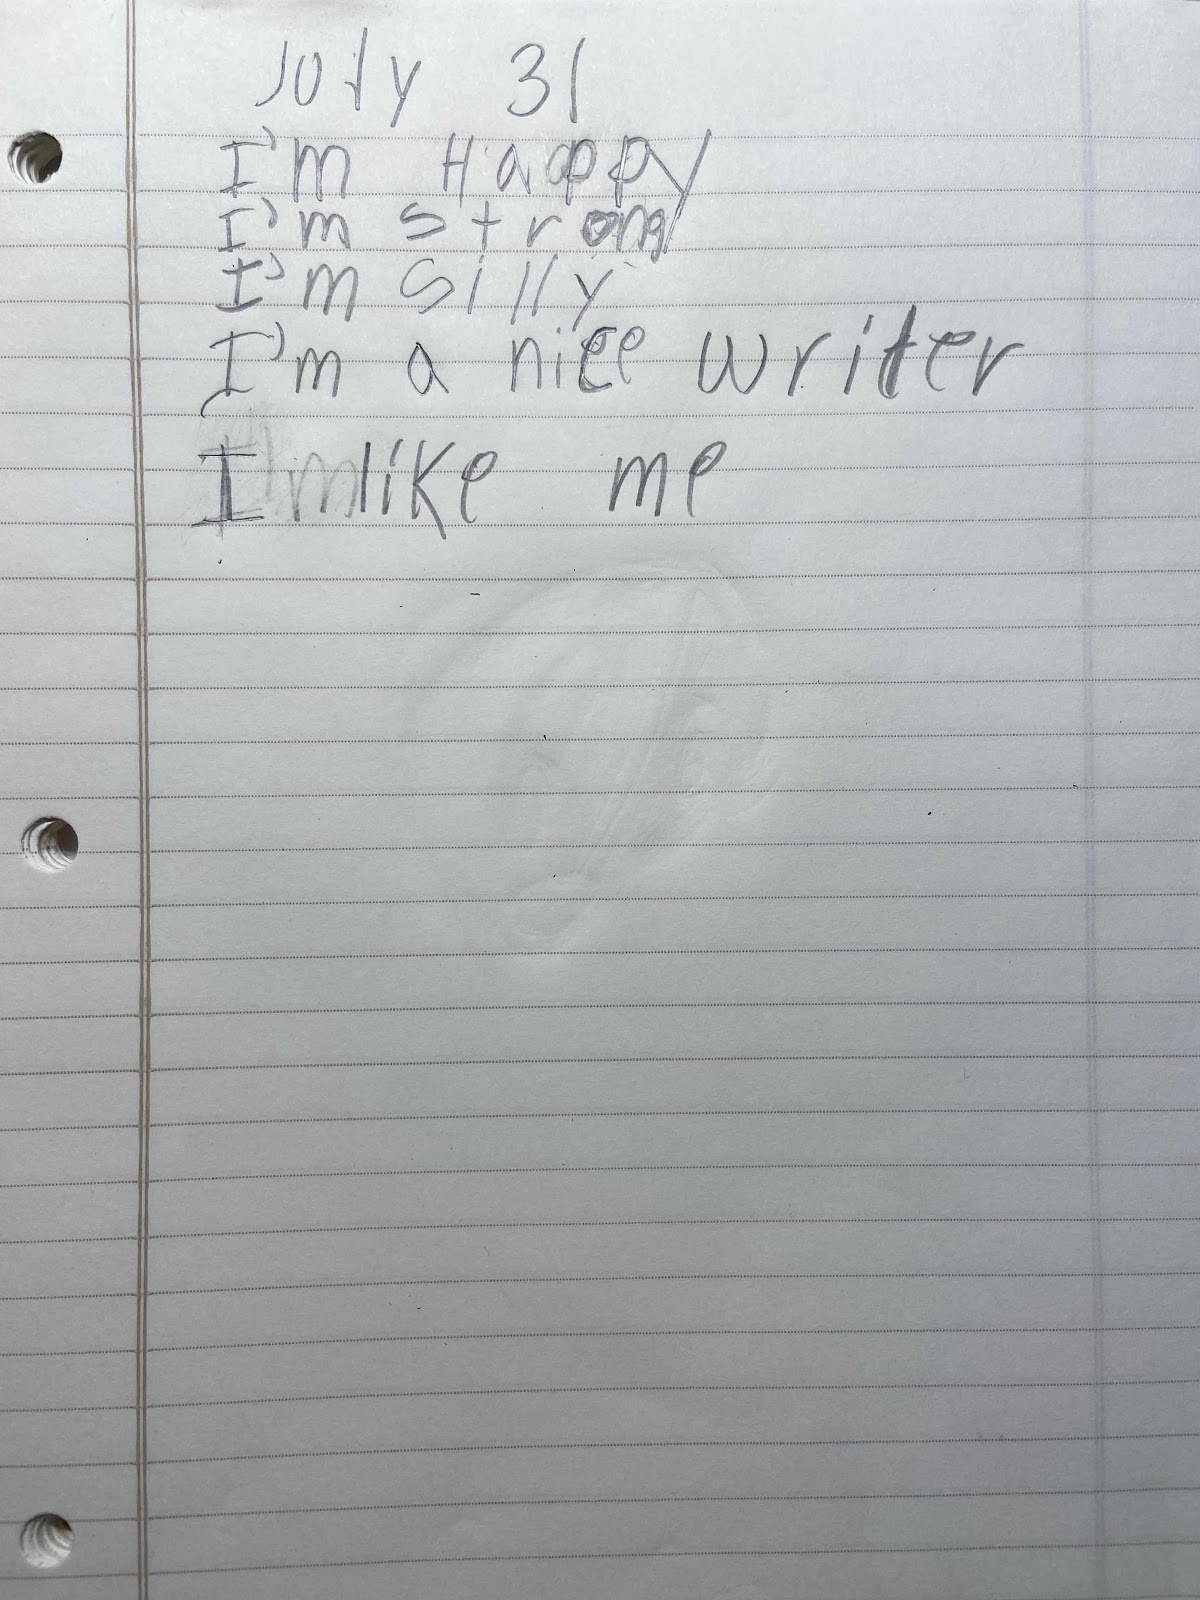 July 31
I'm Happy
I'm strong
I'm silly
I'm a nice writer
I like me